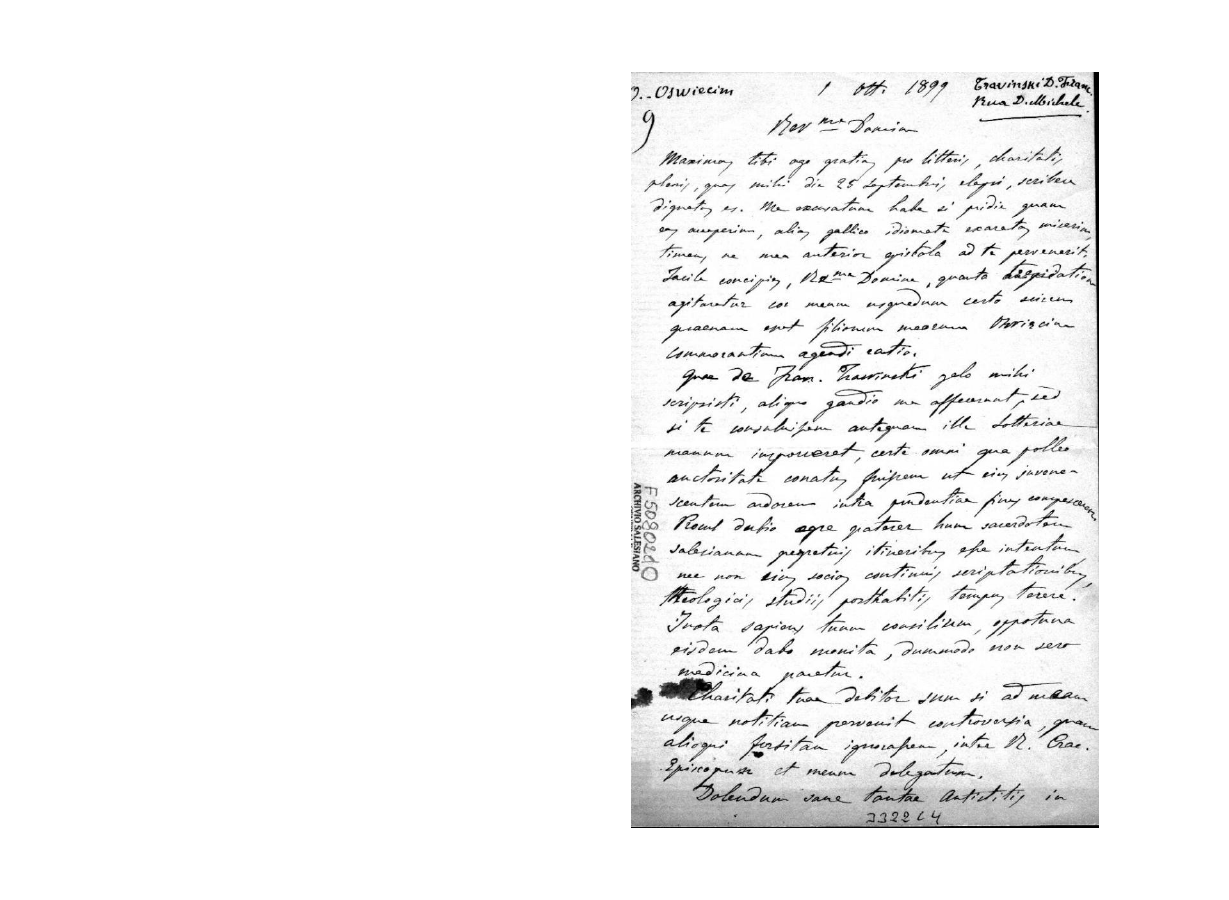 O.. Oswiecim 1 Ott. 1899 Travinski D. Fran.
Rua D. Michele.
9
Rev me Domine
Maximas tibi ago gratias pro litteris, charitatis
plenis, quas mihi die 25 septembris elapsi, scribere
dignatus es. Me excusatum habe si pridie quam
eas acceperim, alias gallico idiomate exaratas miserim,
timens ne mea anterior epistola ad te pervenerit.
Facile concipies, R me Domine, quanta trepidatione
agitaretur cor meum usquedum certo scirem
quaenam esset filiorum meorum Oswiecim
commorantium agendi ratio.
Quae de Fran. Trawinski zelo mihi
scripsisti, aliquo gaudio me affecerunt, sed
si te consuluissem antequam ille Lotteriae
manum imponeret, certe omni qua polleo
auctoritate conatus fuissem ut eius juvene-
scentem ardorem intra prudentiae fines compescerem.
Procul dubio aegre paterer hunc sacerdotem
salesianum itineribus esse intentum,
nec non eius socios continuis scriptationibus,
theologicis studiis posthabitis, tempus terere.
Juxta sapiens tuum consilium, oppotuna
eisdem dabo monita, dummodo non sero
medicina paretur.
Charitati tuae debitor sum si ad meam
usque notitiam pervenit controversia, quam
alioqui forsitan ignorassem, inter R. Crac.
Episcopum et meum delegatum.
Dolendum sane tantae Antistitis in
332264
F 5080210
ARCHIVIO SALESIANO